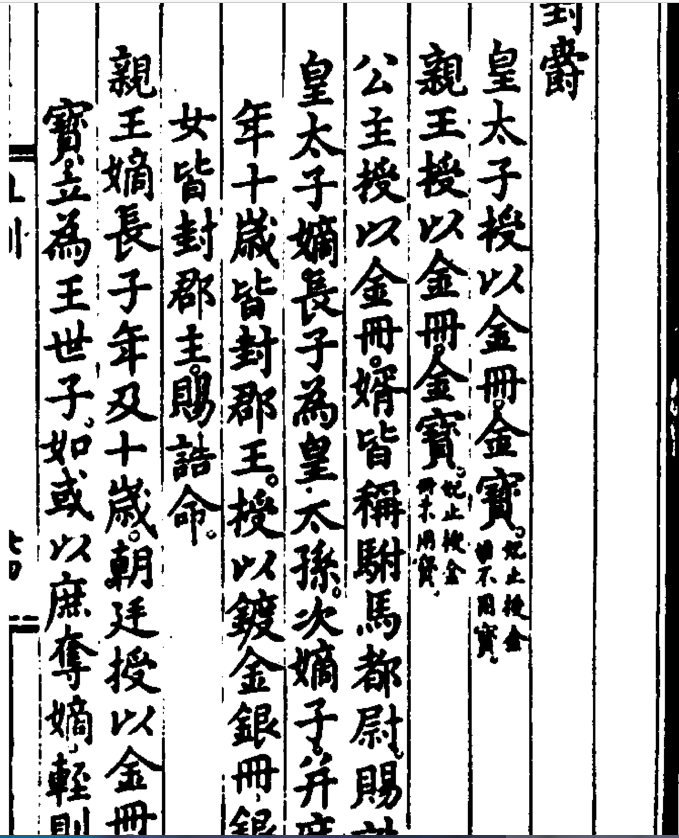 封爵
皇太子授以金冊。金寶。妃止授金冊不用寶。
親王授以金冊。金寶。妃止授金冊不用寶。
公主授以金冊。婿皆稱駙馬都尉。賜誥
皇太子嫡長子為皇太孫。次嫡子。并庶
年十歲皆封郡王。授以鍍金銀冊銀
女皆封郡主。賜誥命。
親王嫡長子年及十歲。朝廷授以金冊
寶。立為王世子。如或以庶奪嫡。輕則